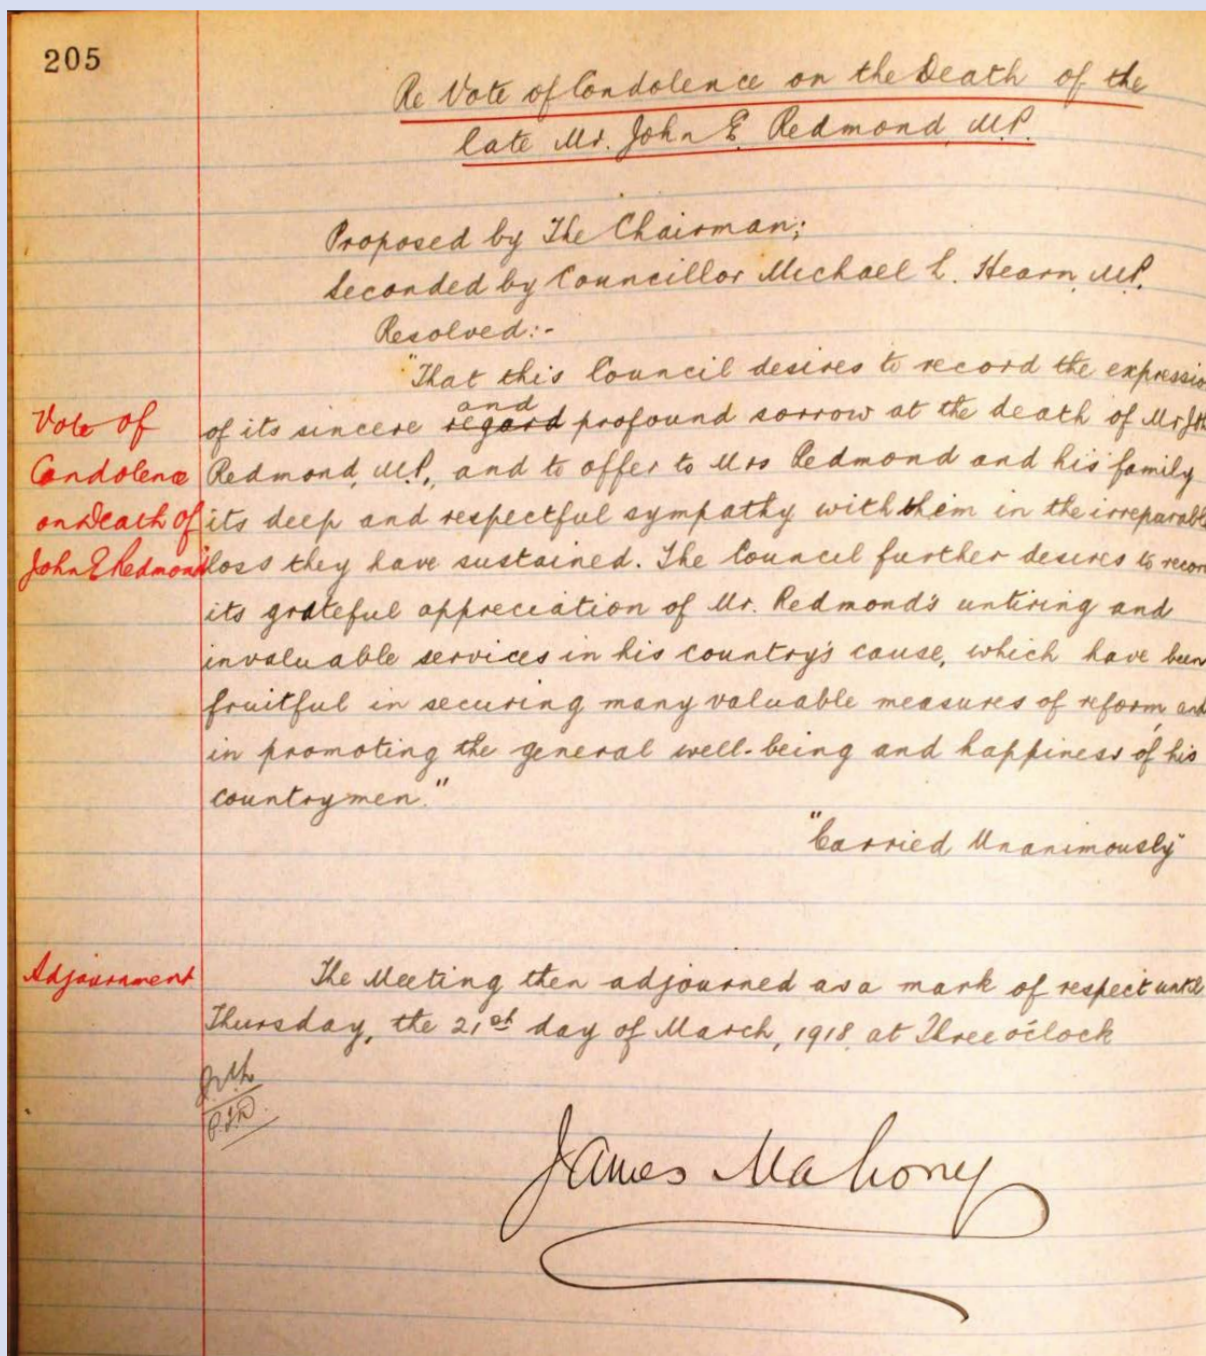 205
Re Vote of Condolence on the Death of the
late Mr. John E. Redmond, M.P.
Proposed by The Chairman;
Seconded by Councillor Michael L. Hearn, M.P.
Resolved:-
"That this Council desires to record the expressio
and
of its sincere regard profound sorrow at the death of Mr
Redmond, M.P., and to offer to Mrs Redmond and his family
its deep and respectful sympathy with them in the irreparabl
loss they have sustained. The Council further desires to recor
its grateful appreciation of Mr. Redmond's untiring and
invaluable services in his country's cause, which have been
fruitful in securing many valuable measures of reform, and
in promoting the general well-being and happiness of his
countrymen."
"Carried Unanimously"
Vote of
Condolence
on Death of
John E Redmond
Adjournment
The Meeting then adjourned as a mark of respect until
Thursday, the 21st day of March, 1918, at Three o'clock
James Mahony